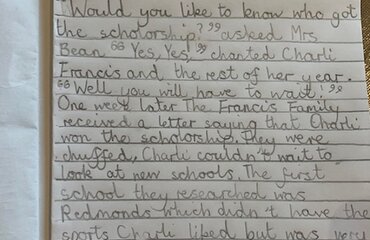 "Would you like to know who got
the scholorship?" asked Mrs
Bean "Yes, Yes," chanted Charli
Francis and the rest of her year.
"Well you will have to wait!"
One week later The Francis Family
received a letter saying that Charli
won the scholorship. They were
chuffed, Charli couldn't wait to
look at new schools. The first
school they researched was
Redmonds which didn't have the
sports Charli liked but was very